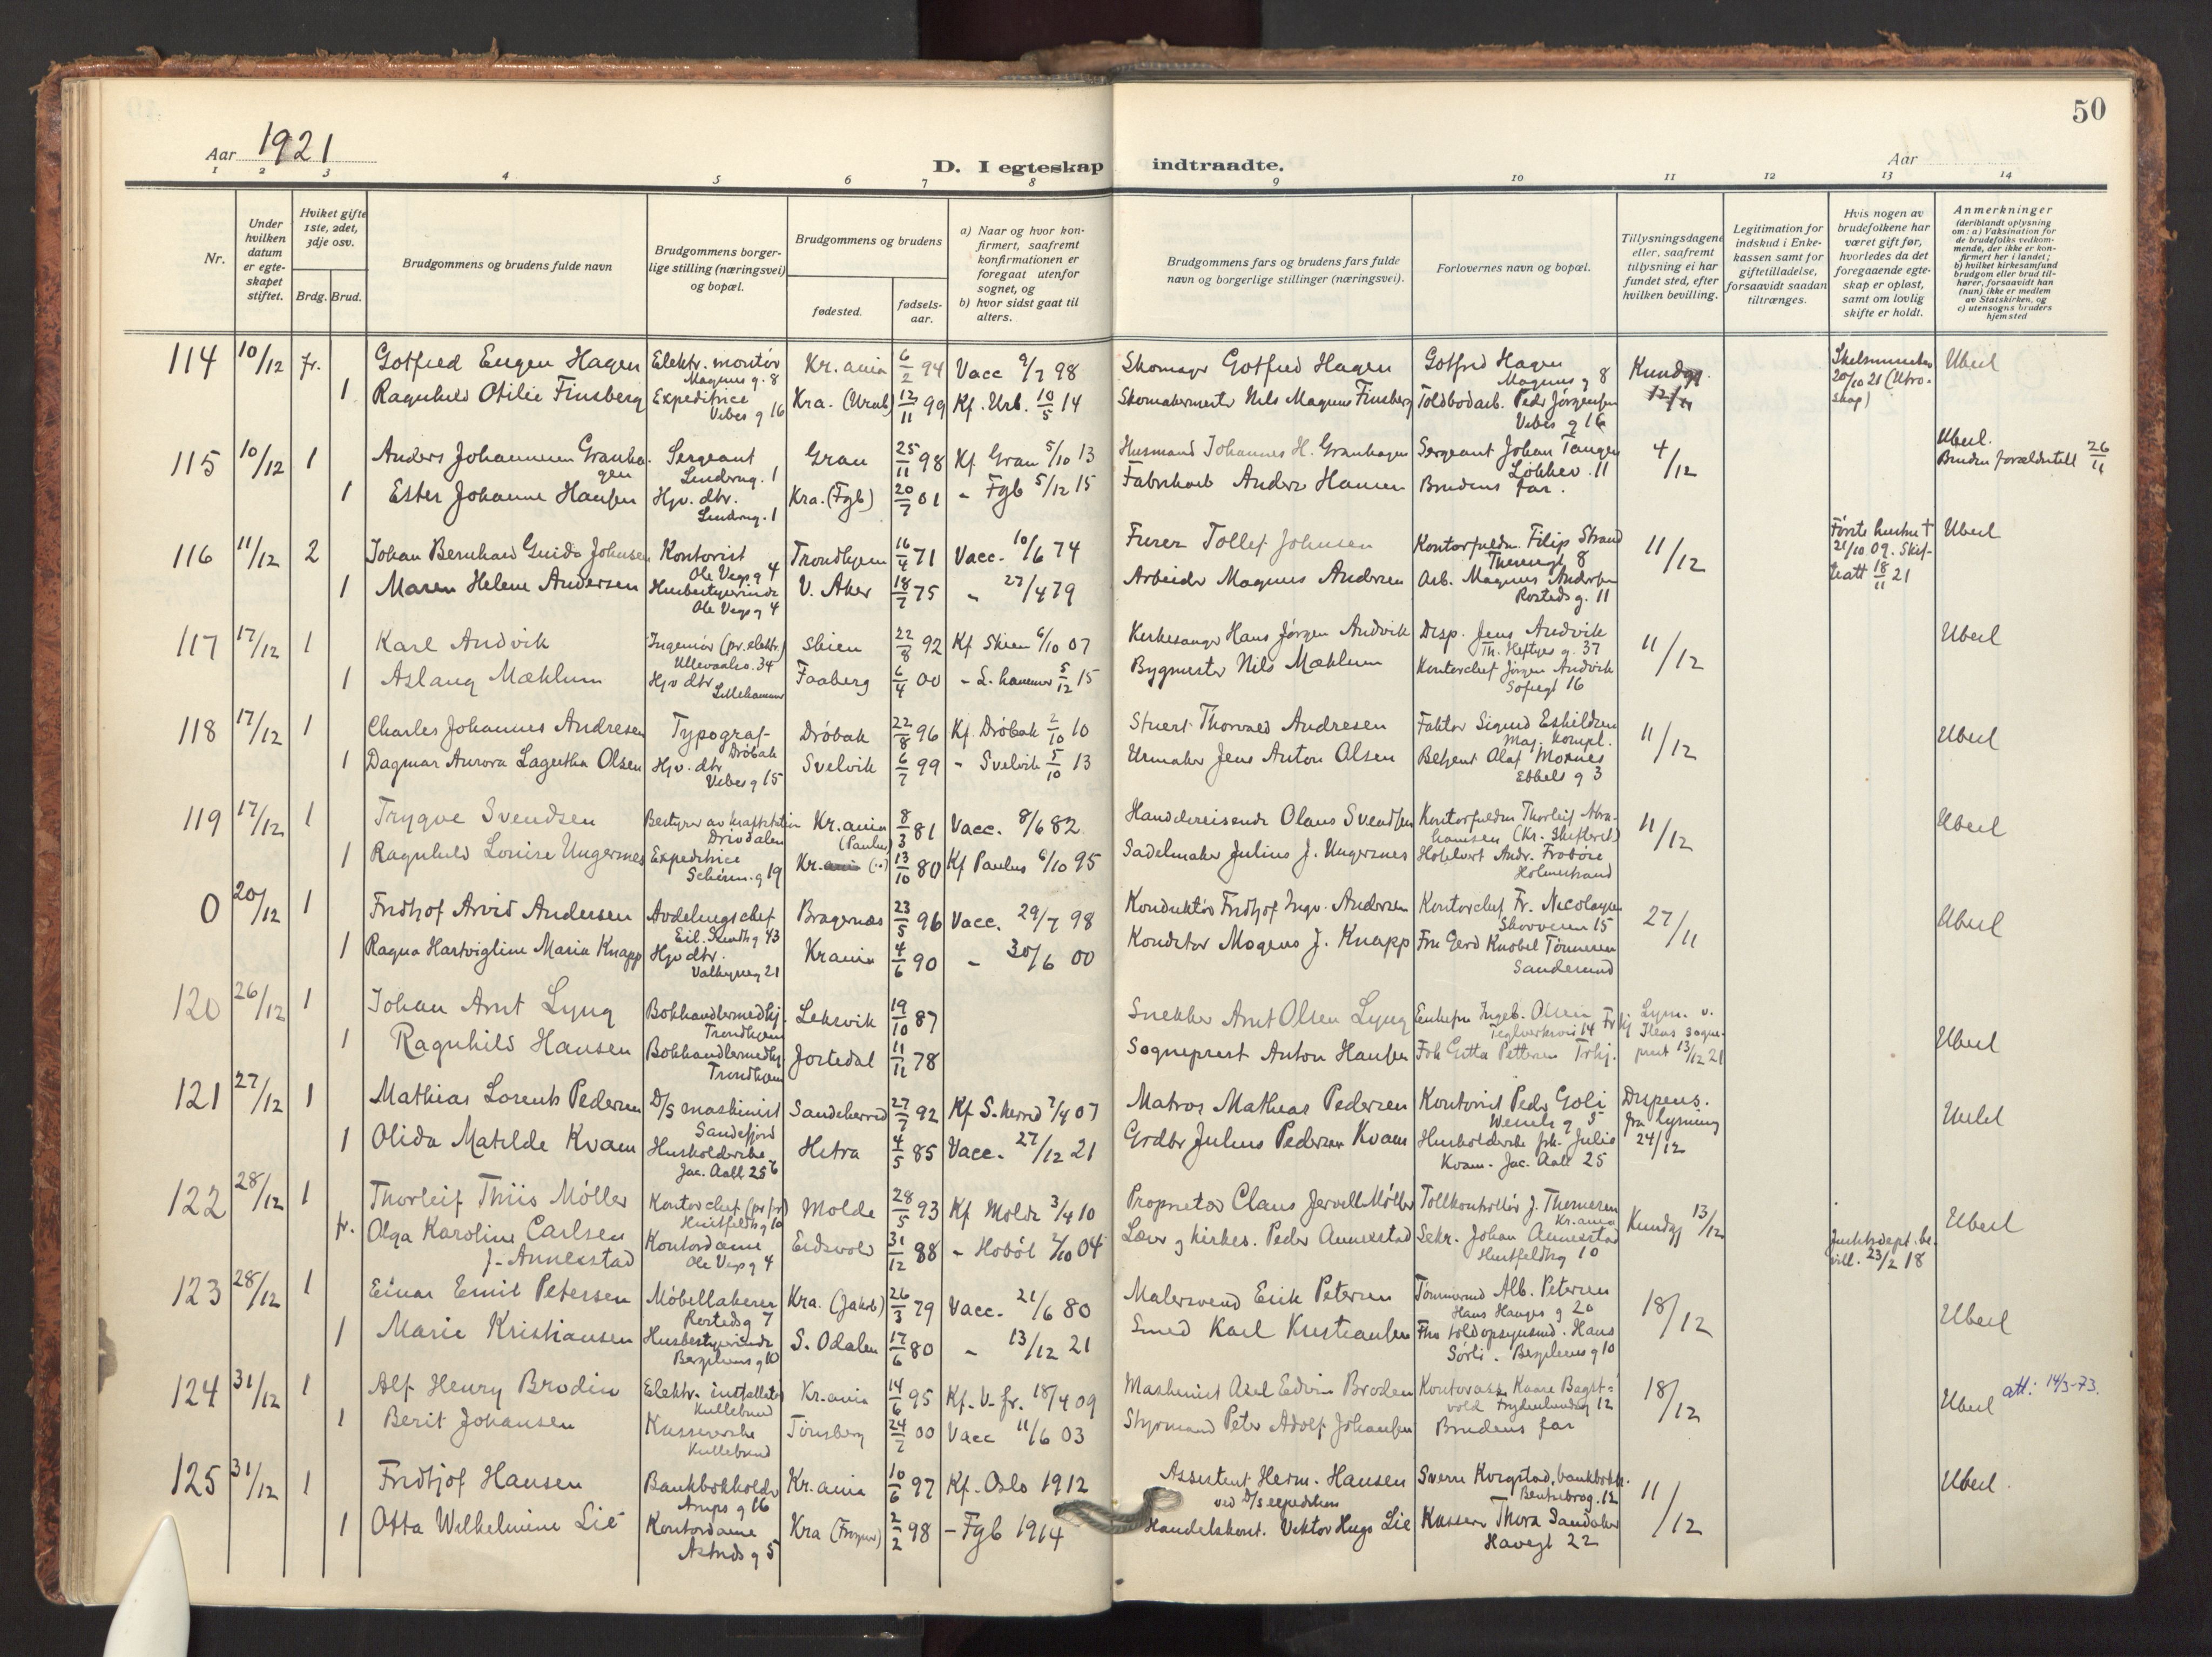 50
Aar 1921
D. I egteskap indtraadte.
Aar
1 2 3 4 5 6 7 8 9 10 11 12 13 14
Nr.
Under hvilken datum er egte-skapet stiftet.
Hvilket gifte 1ste, 2det, 3dje osv.
Brdg. Brud.
Brudgommens og brudens fulde navn
Brudgommens borger-lige stilling (næringsvei) og bopæl.
Brudgommens og brudens
fødested.
fødsels-aar.
a) Naar og hvor kon-firmert, saafremt konfirmationen er foregaat utenfor sognet, og
b) hvor sidst gaat til alters.
Brudgommens fars og brudens fars fulde navn og borgerlige stillinger (næringsvei).
Forlovernes navn og bopæl.
Tillysningsdagene eller, saafremt tillysning ei har fundet sted, efter hvilken bevilling.
Legitimation for indskud i Enke-kassen samt for giftetilladelse, forsaavidt saadan tiltrænges.
Hvis nogen av brudefolkene har været gift før, hvorledes da det foregaaende egte-skap er opløst, samt om lovlig skifte er holdt.
Anmerkninger (deriblandt oplysning om: a) Vaksination for de brudefolks vedkom-mende, der ikke er kon-firmert her i landet; b) hvilket kirkesamfund brudgom eller brud til-hører, forsaavidt han (hun) ikke er medlem av Statskirken, og c) utensogns bruders hjemsted
114 10/12 fr. Gotfred Eugen Hagen Elektr. montør Magnus g. 8 Kr.ania 6/2 94 Vacc 9/7 98 Skomager Gotfred Hagen Gotfred Hagen Magnus g 8 Kundgj. 12/11 20/10 21 (Utro-skap) Uberl
1 Ragnhild Otilie Finsberg Expeditrice Vibes g 16 Kra. (Uranb) 12/11 99 Kf. Urb. 10/5 14 Skomakermester Nils Magnus Finsberg Toldbodarb. Peder Jørgensen Vibes g 16
115 10/12 1 Anders Johannesen Granha-gen Sergeant Lindrug. 1 Gran 25/11 98 Kf Gran 5/10 13 Husmand Johannes H. Granhagen Sergeant Johan Tangen Løkkev. 11 4/12 Uberl. Bruden forældretill 26/11
1 Ester Johanne Hansen Hjv. dtr. Lindrug. 1 Kra. (Fgb) 20/7 01 - Fgb 5/12 15 Fabrikarb Anders Hansen Brudens far.
116 11/12 2 Johan Bernhard Guido Johnsen Kontorist Ole Vigs g 4 Trondhjem 16/4 71 Vacc. 10/6 74 Furer Tollef Johnsen Kontorfuldm. Filip Strand Theresegt 8 11/12 Første hustru † 21/10 09. Skif-teatt 18/11 21 Uberl
1 Maren Helene Andersen Husbestyrerinde Ole Vigs g 4 V. Aker 18/7 75 " 27/4 79 Arbeider Magnus Andersen Arb. Magnus Andersen Rosteds g. 11
117 17/12 1 Karl Andvik Ingeniør (pr. elektr.) Ullevaalsv. 34 Skien 22/8 92 Kf Skien 6/10 07 Kirkesanger Hans Jørgen Andvik Disp. Jens Andvik Th. Heftyes g. 37 11/12 Uberl
1 Aslaug Mæhlum Hjv dtr Lillehammer Faaberg 6/4 00 - L.hammer 5/12 15 Bygmester Nils Mæhlum Kontorchef Jørgen Andvik Sofiegt 16
118 17/12 1 Charles Johannes Andresen Typograf Drøbak Drøbak 22/8 96 Kf. Drøbak 2/10 10 Stuert Thorvald Andresen Faktor Sigurd Eskildsen Maj. kompl. 11/12 Uberl
1 Dagmar Aurora Lagertha Olsen Hjv. dtr Vibes g 15 Svelvik 6/7 99 - Svelvik 5/10 13 Urmaker Jens Anton Olsen Betjent Olaf Moxnes Ebbels g 3
119 17/12 1 Trygve Svendsen Bestyrer av kraftstation Drivdalen Kr.ania (Paulus) 8/3 81 Vacc. 8/6 82 Handelsreisende Olaus Svendsen Kontorfuldm Thorleif Abra-hamsen (Kr. Skifteret) 11/12 Uberl
1 Ragnhild Louise Ungersnes Expeditrice Schøns. g 19 Kr. 13/10 80 Kf Paulus 6/10 95 Sadelmaker Julius J. Ungersnes Hotelvert Andr. Frobøse Holmestrand
0 20/12 1 Fridtjof Arvid Andersen Avdelingschef Eil. Sundts g 43 Bragernæs 23/5 96 Vacc. 29/7 98 Konduktør Fridtjof Ingv. Andersen Kontorchef Fr. Nicolaysen Skovveien 15 27/11 Uberl
1 Ragna Hartvigline Maria Knapp Hjv dtr. Valkyrieg 21 Krania 4/6 90 - 30/6 00 Konditor Mogens J. Knapp Fru Gerd Knobel Tønnesen Sandesund
120 26/12 1 Johan Arnt Lyng Bokhandlermedhj. Trondhjem Leksvik 19/10 87 Snekker Arnt Olsen Lyng Enkefru Ingeb. Olsen Teglverksvei 14 Trhj Lysn. v. Ilens sogne-prest 13/12 21 Uberl
1 Ragnhild Hansen Bokhandlermedhj. Trondhjem Jostedal 11/11 78 Sogneprest Anton Hansen Frk Gitta Pettersen Trhj.
121 27/12 1 Mathias Lorents Pedersen D/S maskinist Sandefjord Sandeherred 27/7 92 Kf S.herred 7/4 07 Matros Mathias Pedersen Kontorist Peder Goli Wessels g 5 Dispens. fra lysning 24/12 Uberl
1 Olida Matilde Kvam Husholderske Jac. Aall 25 b Hitra 4/5 85 Vacc. 27/12 21 Grdbr Julius Pedersen Kvam Husholderske frk. Julie Kvam. Jac. Aall 25
122 28/12 1 Thorleif Thiis Møller Kontorchef (pr fr) Huitfeldts g 10 Molde 28/5 93 Kf Molde 3/4 10 Proprietær Claus Jervell Møller Tollkontrollør J. Thomesen Kr.ania Kundgj 13/12 Uberl
fr. Olga Karoline Carlsen f. Annexstad Kontordame Ole Vigs g 4 Eidsvold 31/12 88 - Hobøl 2/10 04 Lærer og kirkes. Peder Annexstad Sekr. Johan Annexstad Huitfeldts g 10 Justitsdept. be-vill. 23/2 18
123 28/12 1 Einar Emil Petersen Møbellakerer Rosteds g 7 Kra. (Jakob) 26/3 79 Vacc. 21/6 80 Malersvend Erik Petersen Tømmermd Alb. Petersen Hans Hauges g 20 18/12 Uberl
1 Marie Kristiansen Husbestyrerinde Bergsliens g 10 S. Odalen 17/6 80 " 13/12 21 Smed Karl Kristiansen Fru toldopsynsmd. Hans Sørli. Bergsliens g 10
124 31/12 1 Alf Henry Brodin Elektr. installatør Kullebund Kr.ania 14/6 95 Kf. V. fr. 18/4 09 Maskinist Axel Edvin Broden Kontorass. Kaare Bagst-vold Frydenlundsg 12 18/12 Uberl att: 14/3-73.
1 Berit Johansen Kassererske Kullebund Tønsberg 24/7 00 Vacc 11/6 03 Styrmand Peter Adolf Johansen Brudens far
125 31/12 1 Fridtjof Hansen Bankbokholder Arups g 16 Kr.ania 10/6 97 Kf. Oslo 1912 Assistent Herm. Hansen ved D/S expedition Sverre Korgstad, bankbokh. Bentsebrog. 12 11/12 Uberl.
1 Otta Wilhelmine Lie Kontordame Astrids g 5 Kra (Frogner) 2/2 98 - Fgb 1914 Handelskont. Viktor Hugo Lie Kasserer Thora Sandaker Havegt 22